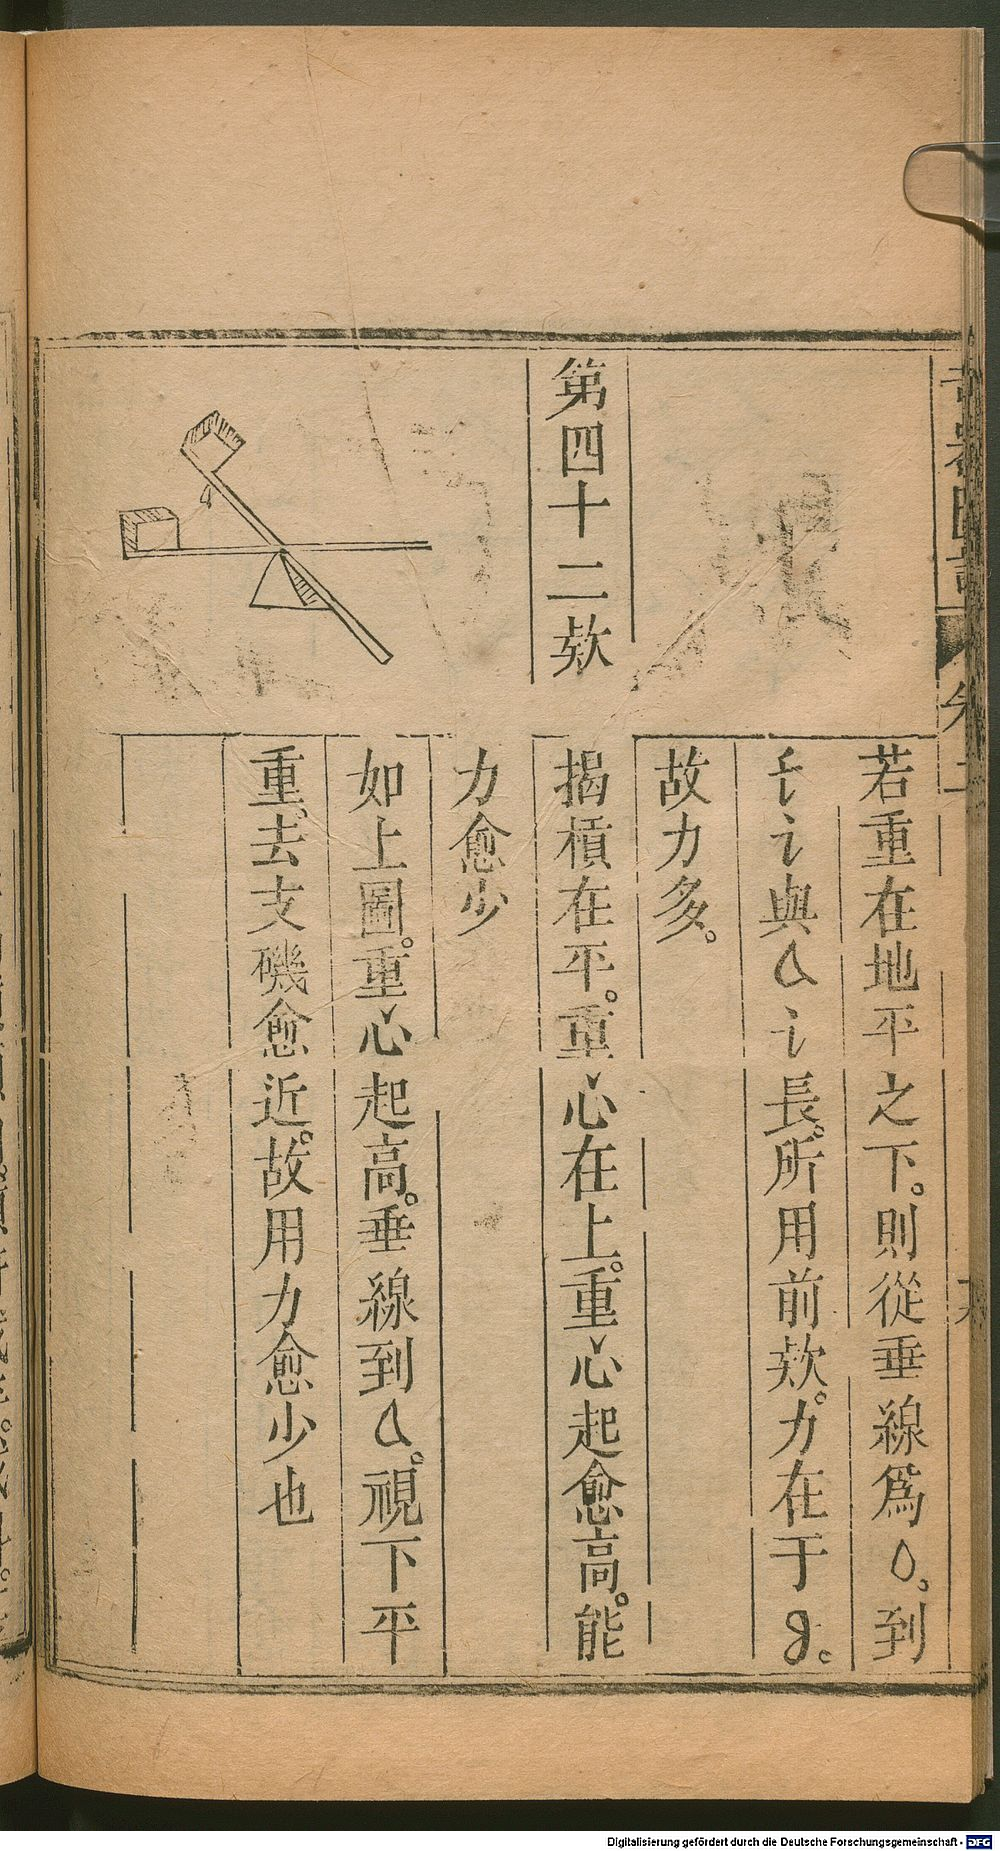 奇器圖說
卷二
若重在地平之下。則從垂線爲o。到
讠與a讠長。所用前欵。力在于g。
故力多。
第四十二欵
揭槓在平。重心在上。重心起愈高。能
力愈少
如上圖。重心起高。垂線到a。視下平
重。去支磯愈近。故用力愈少也
a
Digitalisierung gefördert durch die Deutsche Forschungsgemeinschaft - DFG